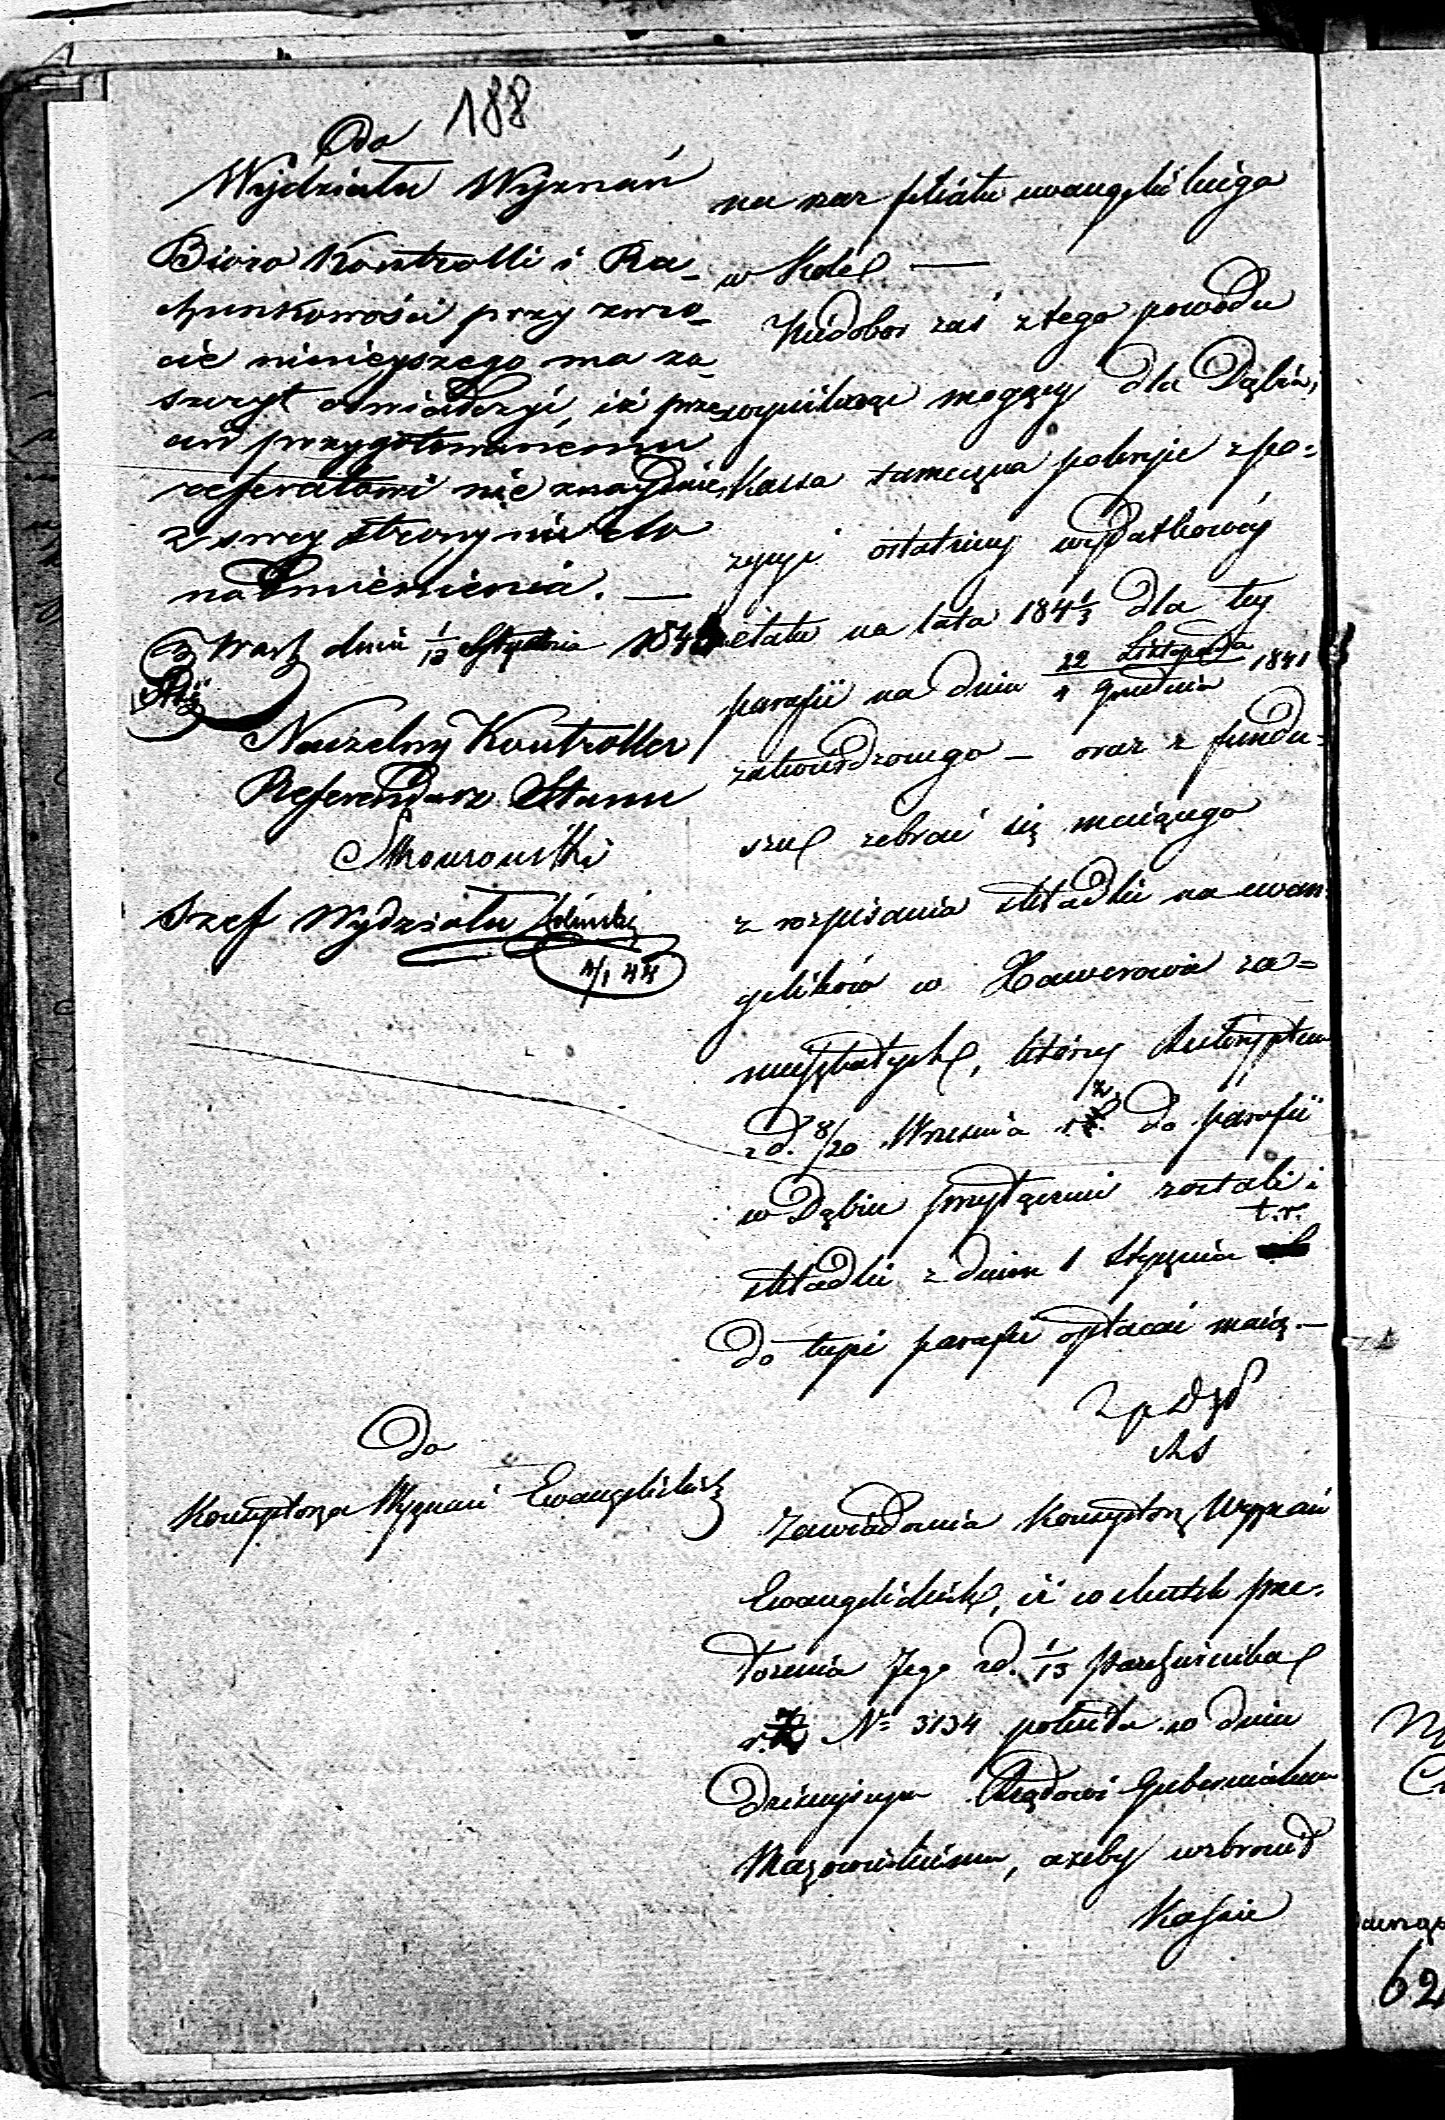 188
Do
Wydziału Wyznań
Bióro Kontrolli i Ra-
chunkowości przy zwro-
cie ninieyszego ma za-
szczyt oświadczyć, iż prze
ciw przygotowanemu
referatowi nie znayduie
z swey strony nic do
nadmienienia. —
w Warsz dnia 1/13 Stycznia 184
Naczelny Kontroller
Referendarz Stanu
Szef Wydziału
4/1 44
na rzecz filiału ewangelickiego
w Kole —
Niedobór zaś z tego powodu
wyniknąć mogący dla Dąbia,
Kassa tameczna pokryje z po-
zycyi ostatniey wydatkowéj
etatu na lata 184 1/3 dla tey
parafii na dniu 22 Listopada / 4 Grudnia 1841
zatwierdzonego — oraz z fundu-
szu zebrać się maiącego
z rozpisania składki na ewan
gelików w Xawerowie za-
mieszkałych, którzy Reskryptem
z d. 8/20 Września r. z. do parafii
w Dąbiu przyłączeni zostali i
składki z dniem 1 Stycznia t. r.
do teyże parafii opłacać maią. —
Do
Konsystorza Wyznań Ewangelickich
Zawiadomia Konsystorz Wyznań
Ewangelickich, iż w skutek prze-
łożenia Jego z d. 1/13 Października
r. z. Nº 3134 poleciła w dniu
dzisiejszym Rządowi Gubernialnemu
Mazowieckiemu, ażeby wzbronił
Kassie
62